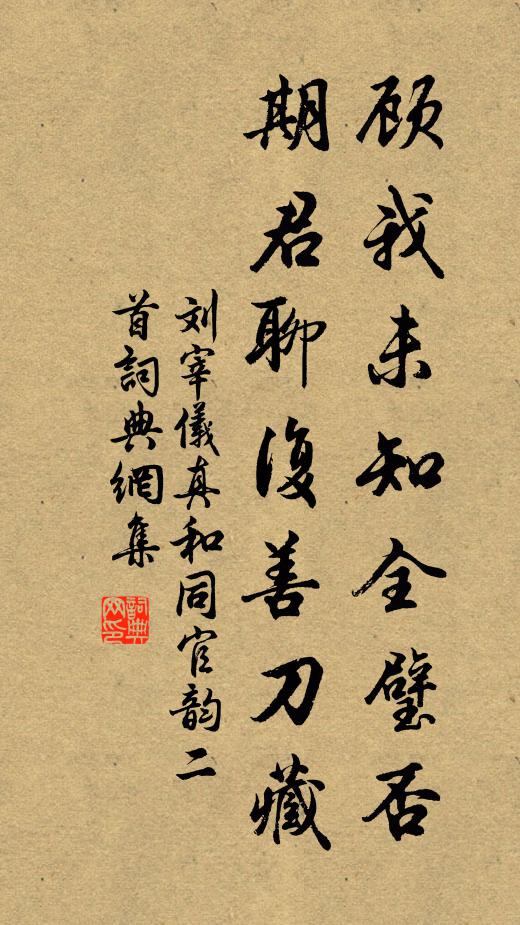 顾我未知全璧否
期君聊復善刀藏
刘宰儀真和同官韵二
首詞典網集
詞典网印